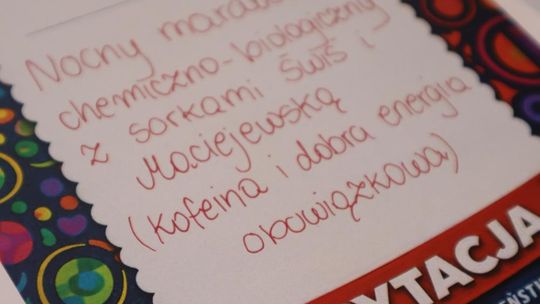 Nocny marato
chemiczno-biologiczny
z sorkami Świś i
Maciejewską
(kofeina i dobra energia
obowiązkowa)
YTACJA